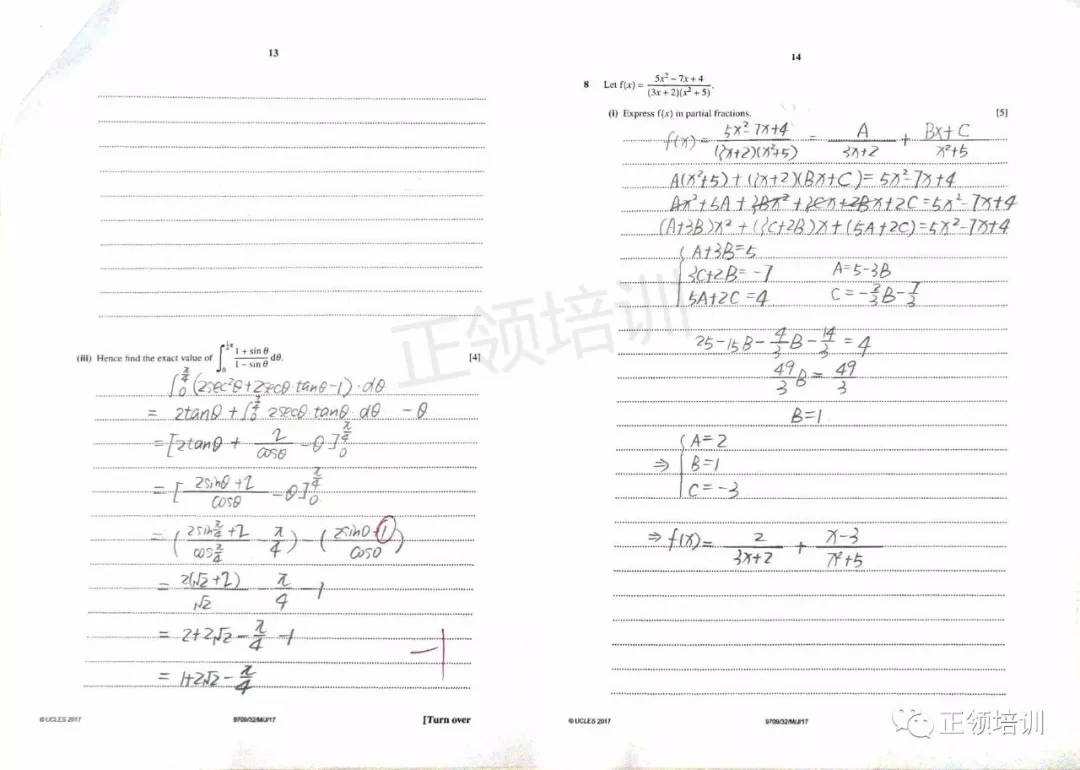 13
(iii) Hence find the exact value of ∫₀^{¼π} (1 + sin θ)/(1 − sin θ) dθ. [4]
∫₀^{π/4} (2sec²θ+2secθ tanθ−1)·dθ
= 2tanθ + ∫₀^{π/4} 2secθ tanθ dθ − θ
= [2tanθ + 2/cosθ − θ]₀^{π/4}
= [(2sinθ+2)/cosθ − θ]₀^{π/4}
= ((2sin π/4 + 2)/cos π/4 − π/4) − ((2sin0+1)/cos0)
= 2(√2+2)/√2 − π/4 − 1
= 2+2√2 − π/4 − 1
= 1+2√2 − π/4
−1
© UCLES 2017 9709/32/M/J/17 [Turn over
14
8 Let f(x) = (5x² − 7x + 4)/((3x + 2)(x² + 5)).
(i) Express f(x) in partial fractions. [5]
f(x) = (5x²−7x+4)/((3x+2)(x²+5)) = A/(3x+2) + (Bx+C)/(x²+5)
A(x²+5) + (3x+2)(Bx+C) = 5x²−7x+4
Ax²+5A+3Bx²+3Cx+2Bx+2C = 5x²−7x+4
(A+3B)x² + (3C+2B)x + (5A+2C) = 5x²−7x+4
A+3B=5
3C+2B=−7 A=5−3B
5A+2C=4 C=−2/3B−7/3
25−15B−4/3B−14/3=4
49/3B=49/3
B=1
A=2
⇒ B=1
C=−3
⇒ f(x)= 2/(3x+2) + (x−3)/(x²+5)
© UCLES 2017 9709/32/M/J/17
正领培训
正领培训